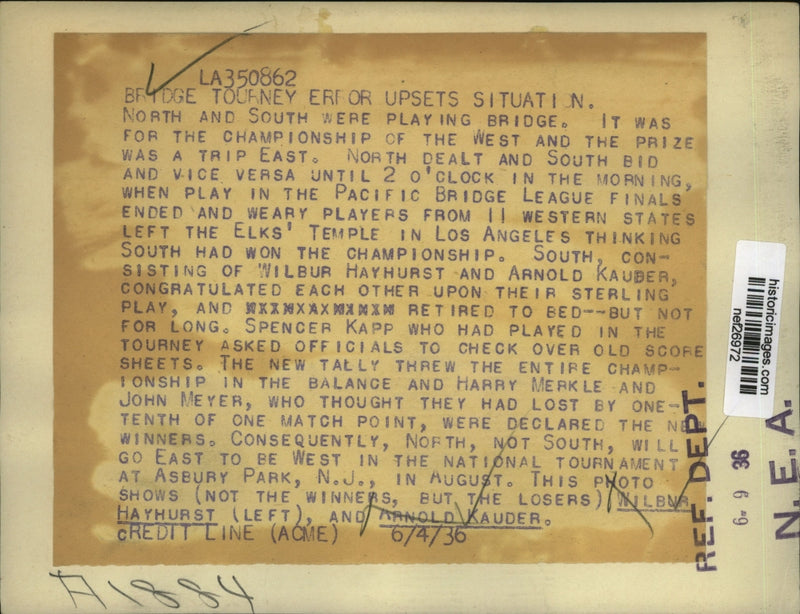 LA350862
BRIDGE TOURNEY ERROR UPSETS SITUATION.
NORTH AND SOUTH WERE PLAYING BRIDGE. IT WAS
FOR THE CHAMPIONSHIP OF THE WEST AND THE PRIZE
WAS A TRIP EAST. NORTH DEALT AND SOUTH BID
AND VICE VERSA UNTIL 2 O'CLOCK IN THE MORNING,
WHEN PLAY IN THE PACIFIC BRIDGE LEAGUE FINALS
ENDED AND WEARY PLAYERS FROM 11 WESTERN STATES
LEFT THE ELKS' TEMPLE IN LOS ANGELES THINKING
SOUTH HAD WON THE CHAMPIONSHIP. SOUTH, CON-
SISTING OF WILBUR HAYHURST AND ARNOLD KAUDER,
CONGRATULATED EACH OTHER UPON THEIR STERLING
PLAY, AND RETIRED TO BED--BUT NOT
FOR LONG. SPENCER KAPP WHO HAD PLAYED IN THE
TOURNEY ASKED OFFICIALS TO CHECK OVER OLD SCORE
SHEETS. THE NEW TALLY THREW THE ENTIRE CHAMP-
IONSHIP IN THE BALANCE AND HARRY MERKLE AND
JOHN MEYER, WHO THOUGHT THEY HAD LOST BY ONE-
TENTH OF ONE MATCH POINT, WERE DECLARED THE NE
WINNERS. CONSEQUENTLY, NORTH, NOT SOUTH, WILL
GO EAST TO BE WEST IN THE NATIONAL TOURNAMENT
AT ASBURY PARK, N.J., IN AUGUST. THIS PHOTO
SHOWS (NOT THE WINNERS, BUT THE LOSERS) WILBUR
HAYHURST (LEFT), AND ARNOLD KAUDER.
CREDIT LINE (ACME) 6/4/36
historicimages.com
nef26972
REF. DEPT.
6-9 36
N.E.A.
A1884